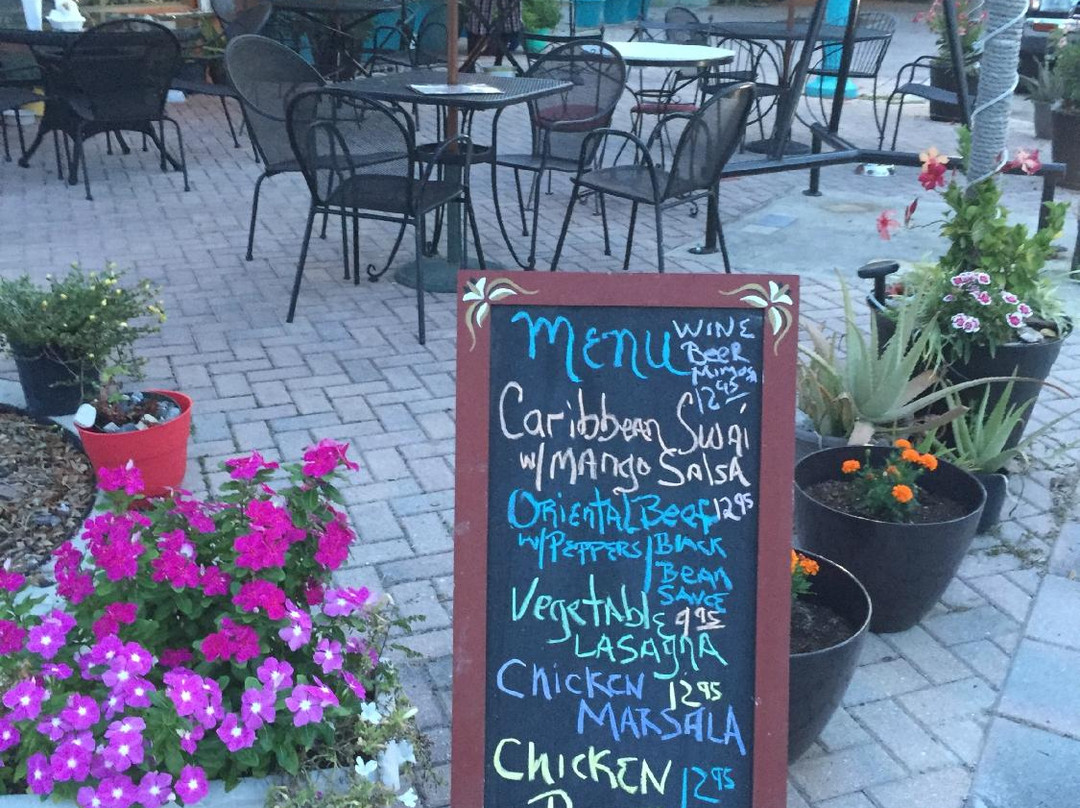 Menu
WINE
BEER
Mimosa
12 95
Caribbean Swai
w/ MANgo SalsA
OrientAl Beef 12 95
w/ PEPPERS / Black
BEAN
SAUCE
VegetAble 9 95
LASAgnA
ChickEN 12 95
MARSALA
ChickEN 12 95